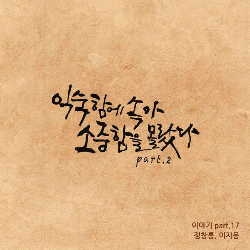 익숙함에 속아
소중함을 몰랐다
part.2
이야기 part.17
정창룡, 이지용